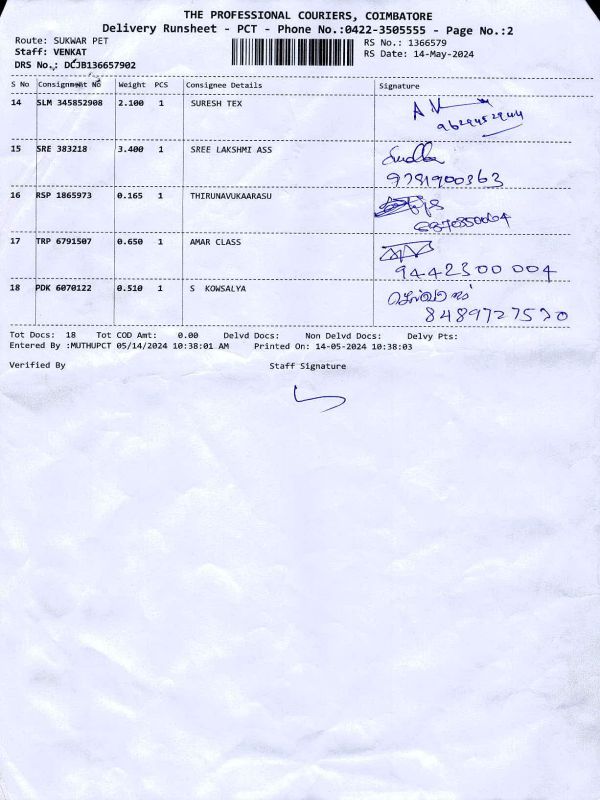 THE PROFESSIONAL COURIERS, COIMBATORE
Delivery Runsheet - PCT - Phone No.:0422-3505555 - Page No.:2
Route: SUKWAR PET RS No.: 1366579
Staff: VENKAT RS Date: 14-May-2024
DRS No.: DCJB136657902
S No Consignment No Weight PCS Consignee Details Signature
14 SLM 345852908 2.100 1 SURESH TEX
15 SRE 383218 3.400 1 SREE LAKSHMI ASS
9781900363
16 RSP 1865973 0.165 1 THIRUNAVUKAARASU
17 TRP 6791507 0.650 1 AMAR CLASS
9442300004
18 PDK 6070122 0.510 1 S KOWSALYA
8489727570
Tot Docs: 18 Tot COD Amt: 0.00 Delvd Docs: Non Delvd Docs: Delvy Pts:
Entered By :MUTHUPCT 05/14/2024 10:38:01 AM Printed On: 14-05-2024 10:38:03
Verified By Staff Signature